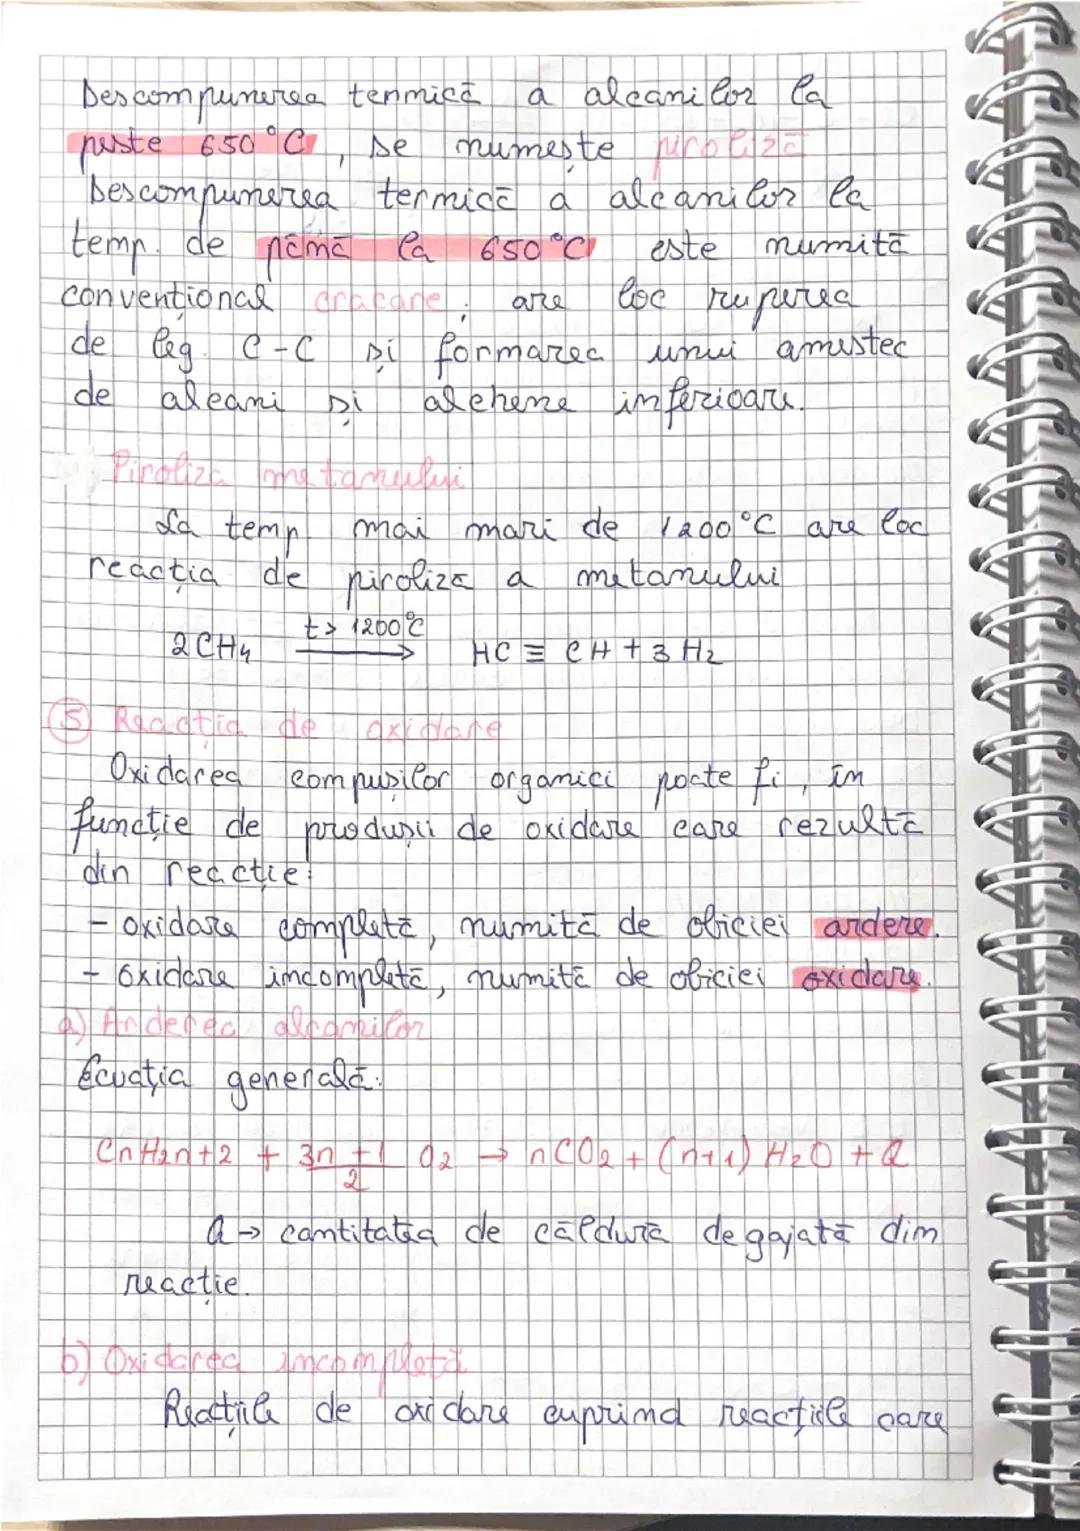 Descompunerea termică a alcanilor la
peste 650°C, se numește piroliză
Descompunerea termică a alcanilor la
temp. de până la 650°C este numită
convențional cracare; are loc ruperea
de leg. C-C și formarea unui amestec
de alcani și alchene inferioare.
Piroliza metanului
La temp mai mari de 1200°C are loc
reacția de piroliză a metanului
2CH₄ t> 1200°C → HC ≡ CH + 3 H₂
⑤ Reacția de oxidare
Oxidarea compușilor organici poate fi, în
funcție de produșii de oxidare care rezultă
din reacție:
- oxidare completă, numită de obicei ardere.
- oxidare incompletă, numită de obicei oxidare.
a) Arderea alcanilor
Ecuația generală:
CnH2n+2 + 3n+1/2 O₂ → nCO₂ + (n+1) H₂O + Q
Q → cantitatea de căldură degajată din
reacție.
b) Oxidarea incompletă
Reacțiile de oxidare cuprind reacțiile care